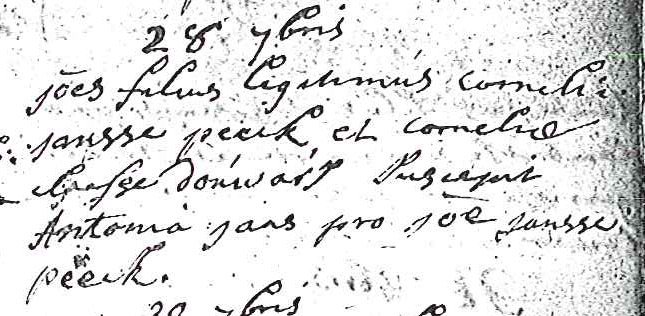 28 7bris
jōes filius legitimus cornelii
jansse peeck et cornelie
claesse donwart suscepit
Antonia jans pro jōe jansse
peeck.
7bris